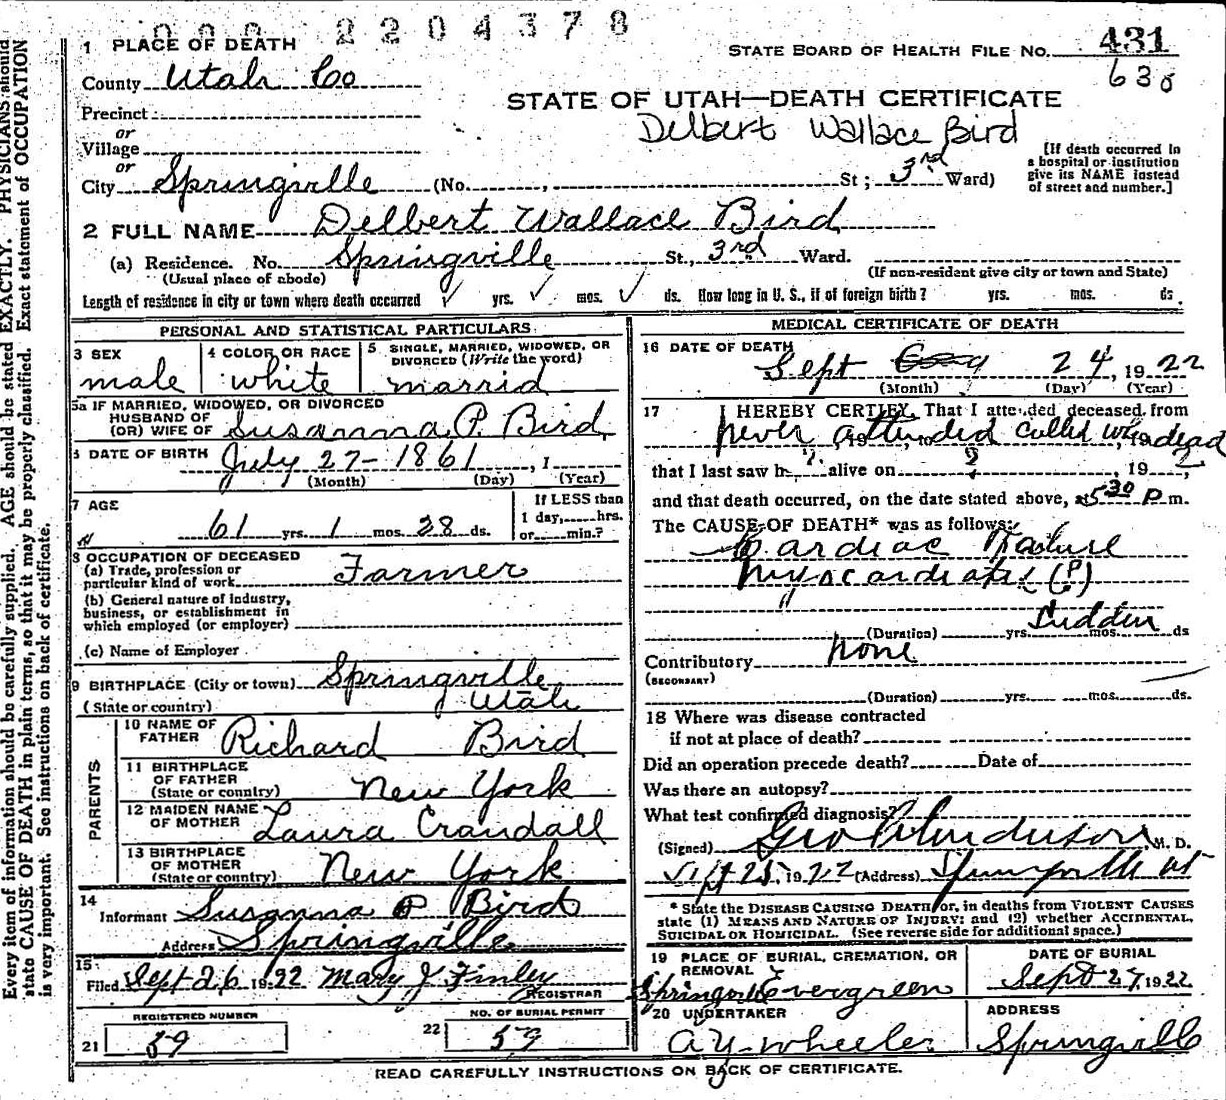 000 2204378
1 PLACE OF DEATH
STATE BOARD OF HEALTH FILE No. 431
County Utah Co
630
STATE OF UTAH—DEATH CERTIFICATE
Precinct
Delbert Wallace Bird
or
Village
or
City Springville (No. , St; 3rd Ward)
[If death occurred in
a hospital or institution
give its NAME instead
of street and number.]
2 FULL NAME Delbert Wallace Bird
(a) Residence. No. Springville St., 3rd Ward.
(Usual place of abode) (If non-resident give city or town and State)
Length of residence in city or town where death occurred ✓ yrs. ✓ mos. ✓ ds. How long in U. S., if of foreign birth? yrs. mos. ds.
PERSONAL AND STATISTICAL PARTICULARS
3 SEX
male
4 COLOR OR RACE
white
5 SINGLE, MARRIED, WIDOWED, OR
DIVORCED (Write the word)
marrid
5a IF MARRIED, WIDOWED, OR DIVORCED
HUSBAND OF
(OR) WIFE OF Susanna P. Bird
6 DATE OF BIRTH July 27 - 1861, 1
(Month) (Day) (Year)
7 AGE
61 yrs. 1 mos. 28 ds.
If LESS than
1 day, hrs.
or min.?
8 OCCUPATION OF DECEASED
(a) Trade, profession or
particular kind of work Farmer
(b) General nature of industry,
business, or establishment in
which employed (or employer)
(c) Name of Employer
9 BIRTHPLACE (City or town) Springville
(State or country) Utah
PARENTS
10 NAME OF
FATHER Richard Bird
11 BIRTHPLACE
OF FATHER
(State or country) New York
12 MAIDEN NAME
OF MOTHER Laura Crandall
13 BIRTHPLACE
OF MOTHER
(State or country) New York
14
Informant Susanna P Bird
Address Springville
15
Filed Sept 26 1922 Mary J Finley
REGISTRAR
REGISTERED NUMBER
21 59
NO. OF BURIAL PERMIT
22 59
MEDICAL CERTIFICATE OF DEATH
16 DATE OF DEATH
Sept 24, 1922
(Month) (Day) (Year)
17 I HEREBY CERTIFY, That I attended deceased from
never attended called when dead
that I last saw h ? alive on ?, 19 ?
and that death occurred, on the date stated above, at 5 30 P m.
The CAUSE OF DEATH* was as follows:
Cardiac Failure
(?)
Sudden
(Duration) yrs. mos. ds
Contributory None
(SECONDARY)
(Duration) yrs. mos. ds.
18 Where was disease contracted
if not at place of death?
Did an operation precede death? Date of
Was there an autopsy?
What test confirmed diagnosis?
(Signed) Geo Anderson, M. D.
Sept 25, 1922 (Address) Springville Ut
* State the DISEASE CAUSING DEATH or, in deaths from VIOLENT CAUSES
state (1) MEANS AND NATURE OF INJURY; and (2) whether ACCIDENTAL,
SUICIDAL OR HOMICIDAL. (See reverse side for additional space.)
19 PLACE OF BURIAL, CREMATION, OR
REMOVAL
Springville Evergreen
DATE OF BURIAL
Sept 27, 1922
20 UNDERTAKER
A Y Wheeler
ADDRESS
Springville
READ CAREFULLY INSTRUCTIONS ON BACK OF CERTIFICATE.
Every item of information should be carefully supplied. AGE should be stated EXACTLY. PHYSICIANS should
state CAUSE OF DEATH in plain terms, so that it may be properly classified. Exact statement of OCCUPATION
is very important. See instructions on back of certificate.